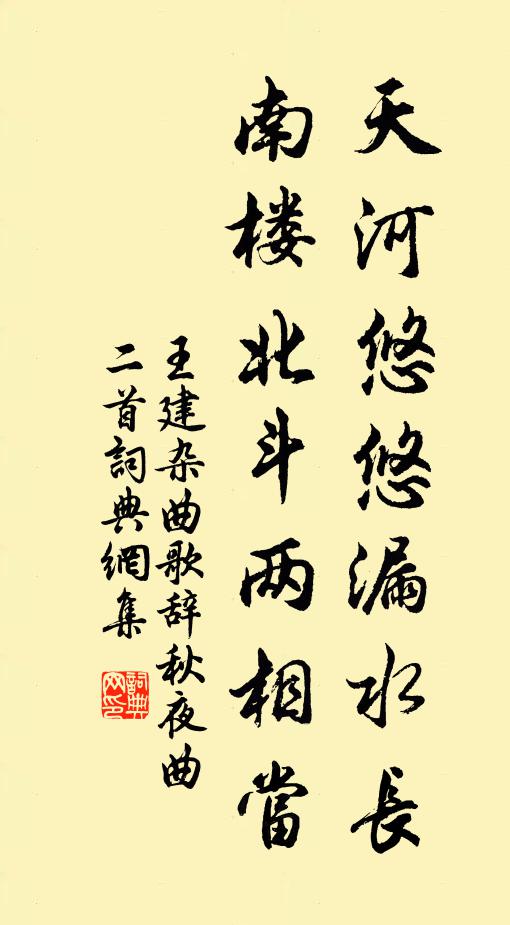 天河悠悠漏水長
南楼北斗两相當
王建杂曲歌辞秋夜曲
二首詞典網集
詞典
网印